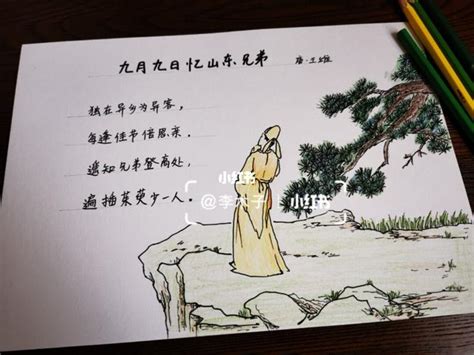 九月九日忆山东兄弟
唐·王维
独在异乡为异客，
每逢佳节倍思亲。
遥知兄弟登高处，
遍插茱萸少一人。
小红书
@李木子
小红书